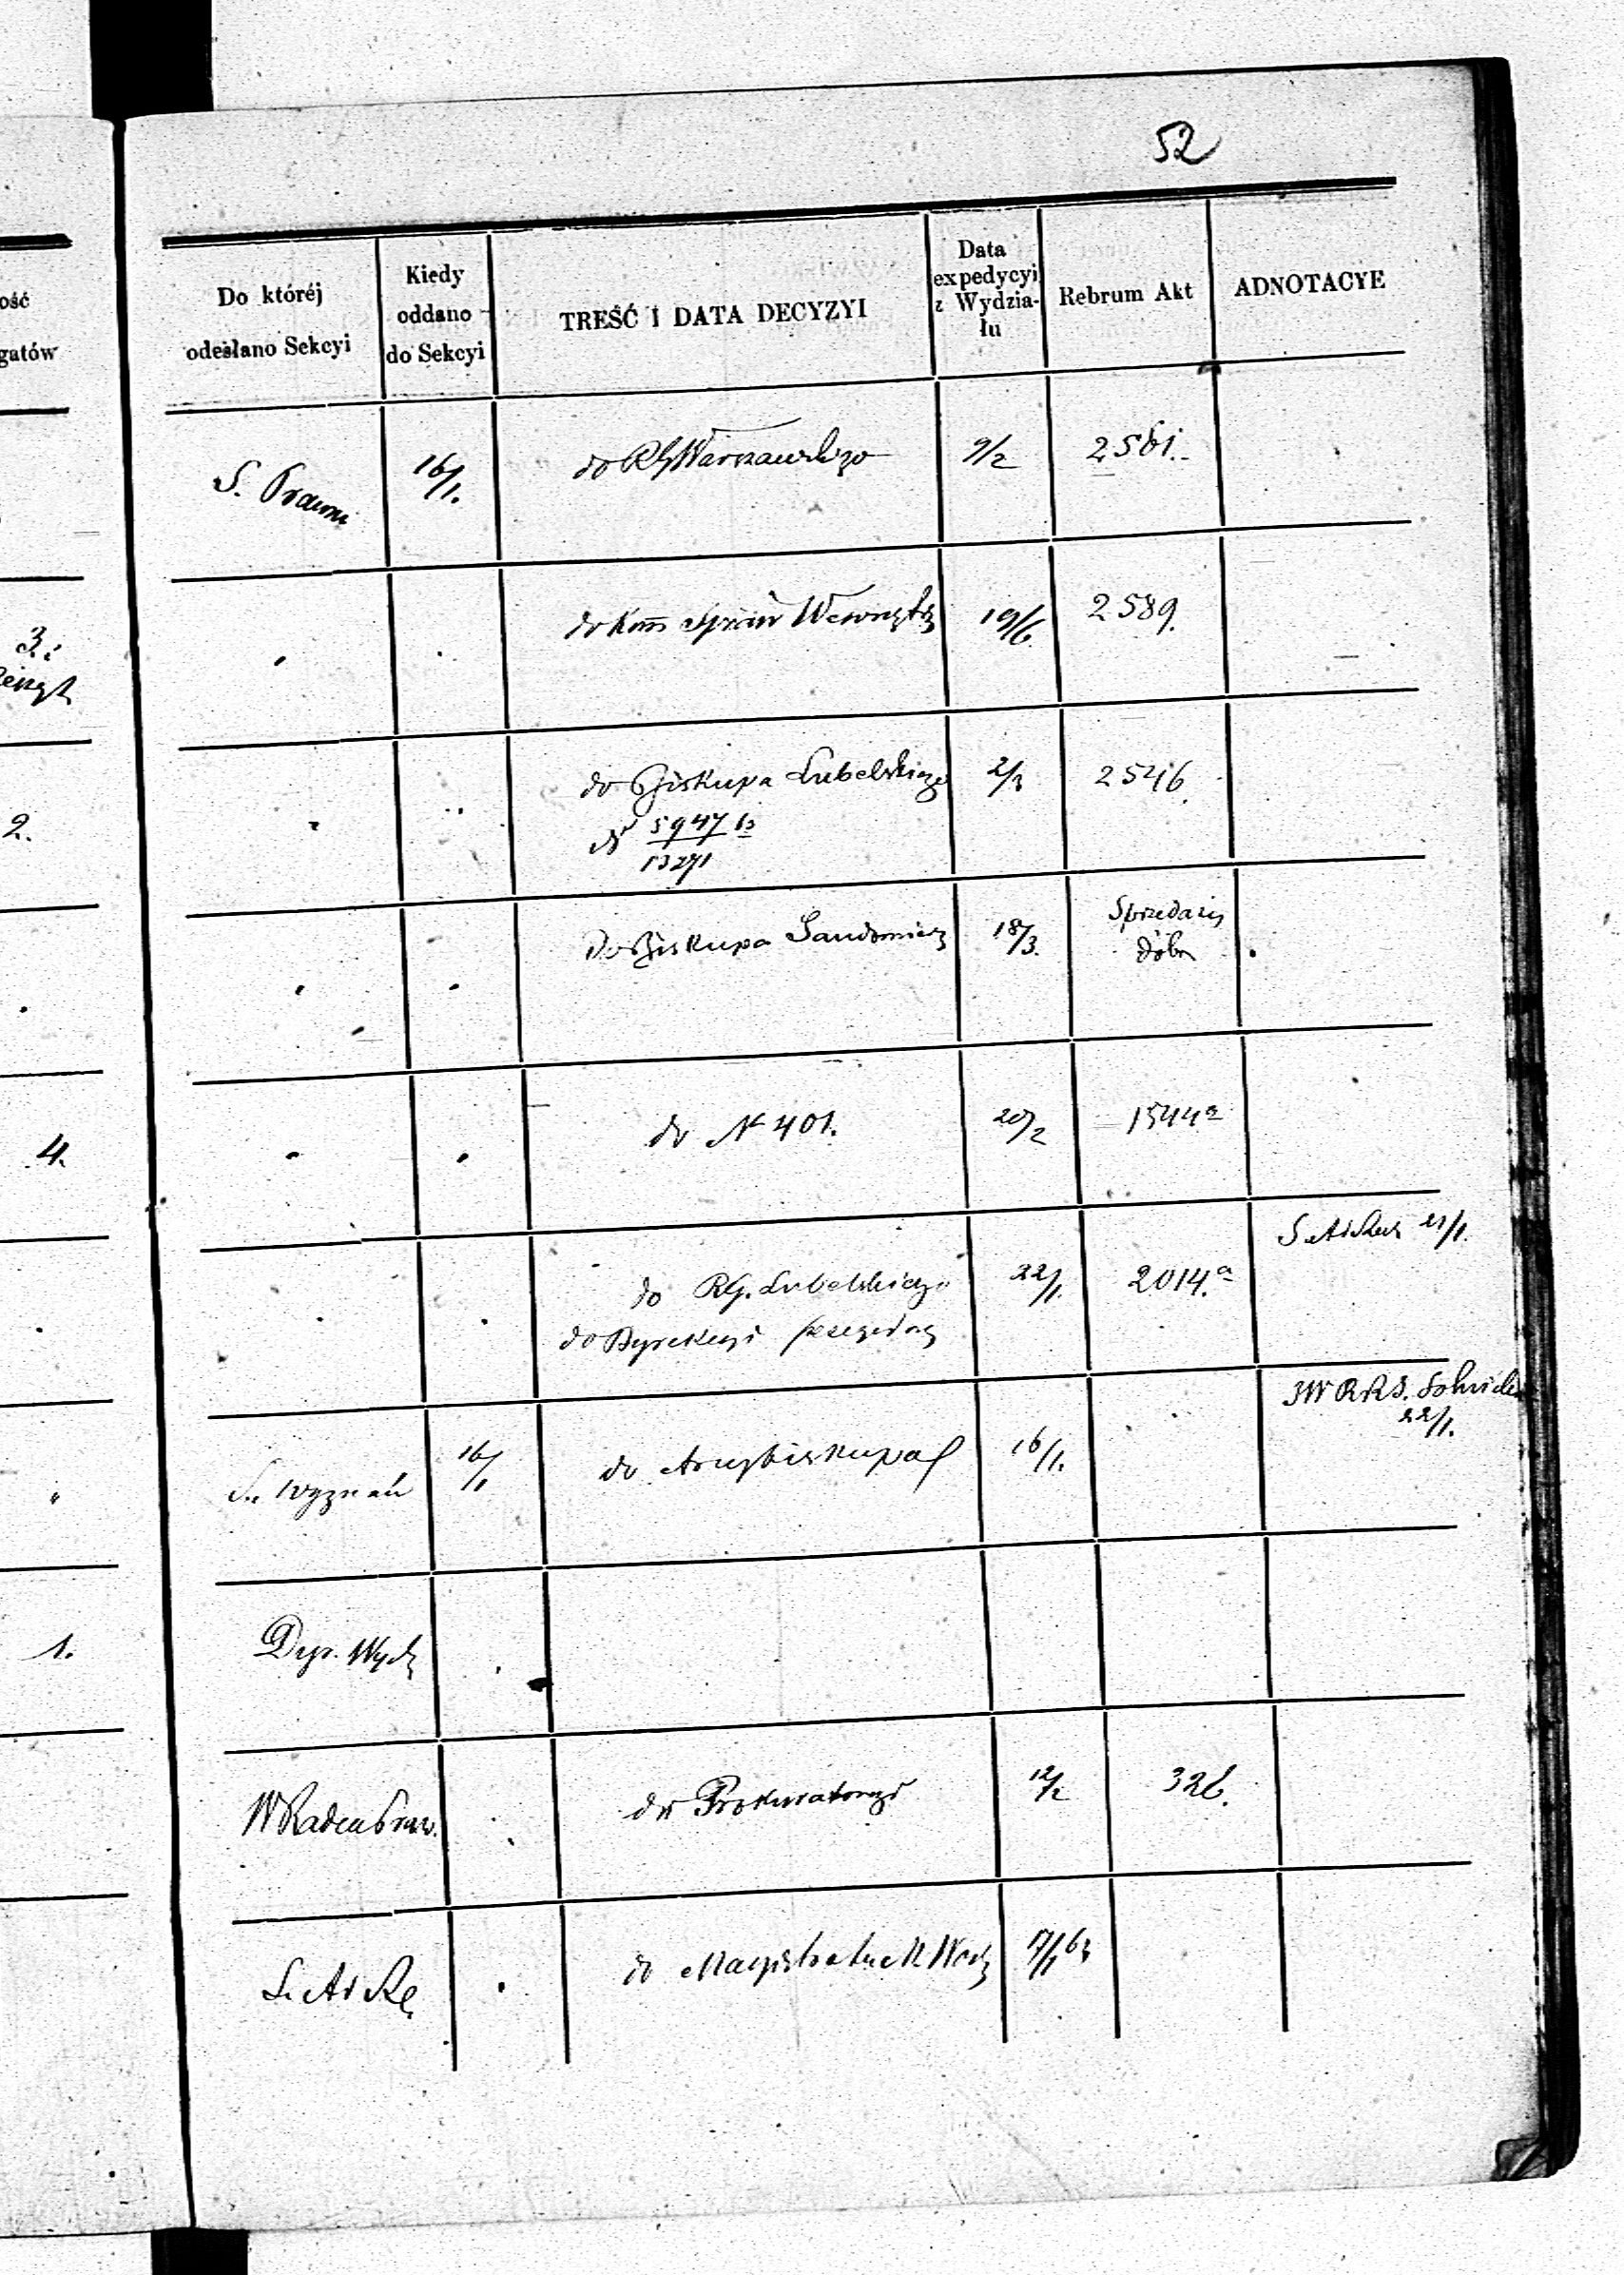 52
ość
gatów
Do któréj
odesłano Sekcyi
Kiedy
oddano
do Sekcyi
TREŚĆ I DATA DECYZYI
Data
expedycyi
z Wydzia-
łu
Rebrum Akt
ADNOTACYE
S. Prawna
16/1.
do RG Warszawskgo
9/2
2581.
3.
do Kom Spraw Wewnętrz
19/6.
2589.
2.
do Biskupa Lubelskiego
2/3
2546.
N 5947
13271
do Biskupa Sandomier
18/3.
Sprzedaży
dóbr
4.
do N 401.
20/2
1544a
do RG. Lubelskiego
22/1.
2014.a
21/1.
do Dyrekcyi
S. Wyznań
16/1
do Arcybiskupa
16/1.
22/1.
1.
Dyr. Wydz
W Radca Praw.
do Prokuratoryi
12/2
326.
do Magistratu M Warsz
17/1 63